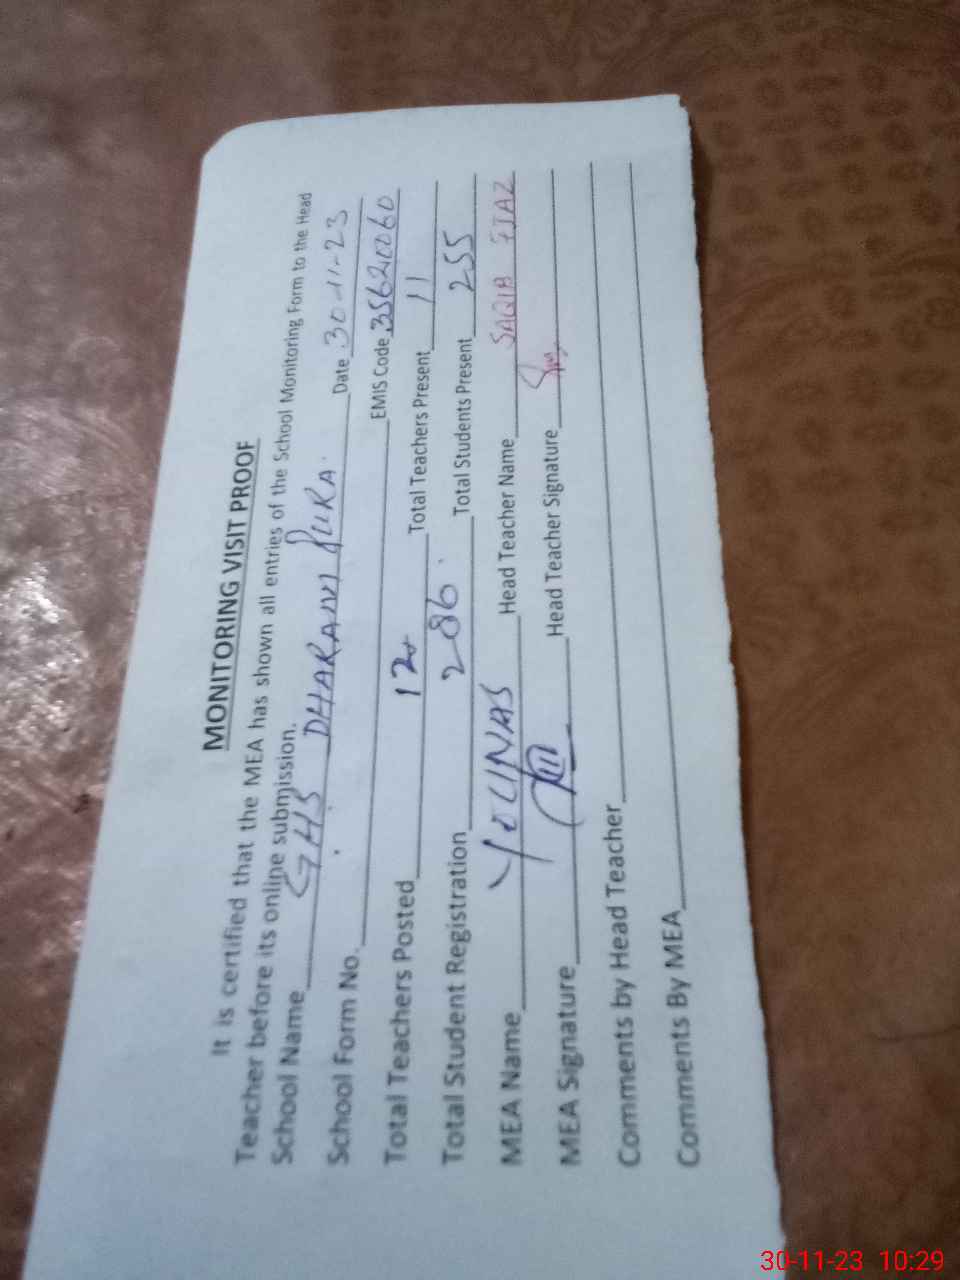 MONITORING VISIT PROOF
It is certified that the MEA has shown all entries of the School Monitoring Form to the Head
Teacher before its online submission.
School Name GHS DHARAM PURA. Date 30-11-23
School Form No. EMIS Code 35620060
Total Teachers Posted 12 Total Teachers Present 11
Total Student Registration 286. Total Students Present 255
MEA Name YOUNAS Head Teacher Name SAQIB EJAZ
MEA Signature Head Teacher Signature
Comments by Head Teacher
Comments By MEA
30-11-23 10:29